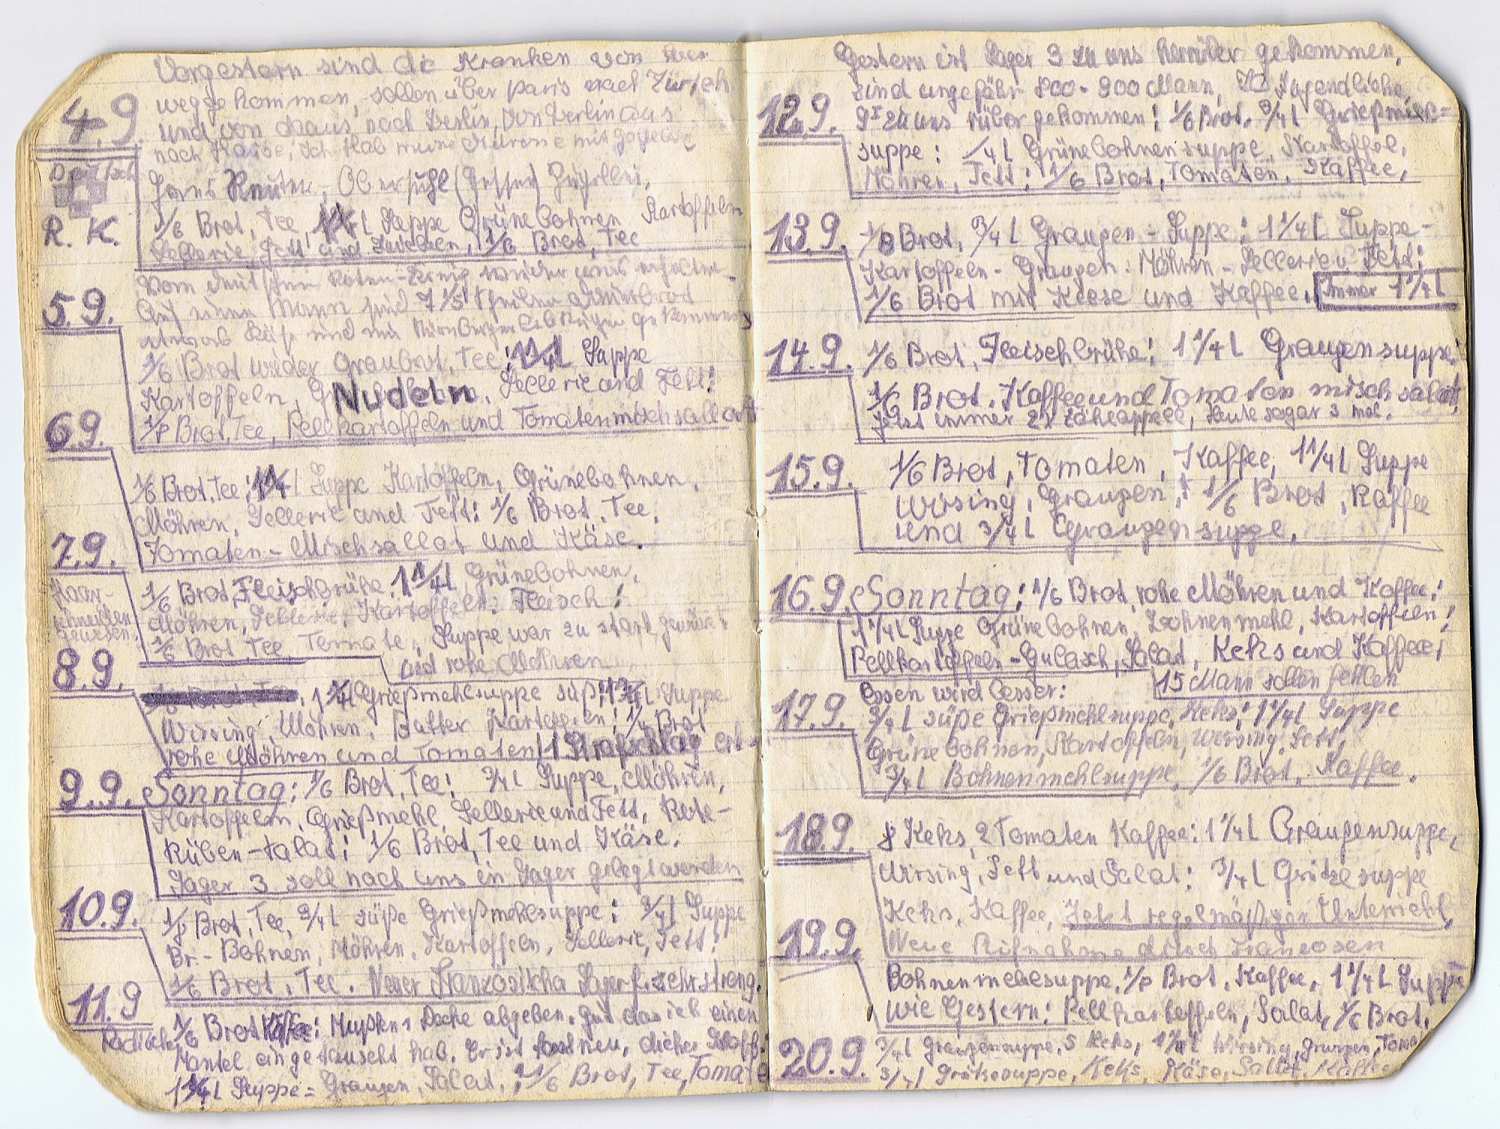 Vorgestern sind die Kranken von hier
weggekommen, sollen über Paris nach Zürich
und von da aus nach Berlin, von Berlin aus
nach Hause, ich hab meine Adresse mit gegeben
4.9
R. K.
1/6 Brot, Tee, 1 1/4 l Suppe Grüne Bohnen, Kartoffeln
Sellerie, Fett und Zwiebeln, 1/6 Brot, Tee
5.9.
Vom deutschen Roten-Kreuz wieder was erhalten.
Auf einen Mann sind 7 1/5 Scheiben
etwas Käse und ein Nürnberger Lebkuchen gekommen
1/6 Brot wieder Graubrot, Tee: 1 1/4 l Suppe
Kartoffeln, Nudeln, Sellerie und Fett:
6.9.
1/6 Brot, Tee, Pellkartoffeln und Tomatenmischsallat
1/6 Brot, Tee: 1 1/4 l Suppe Kartoffeln, Grünebohnen,
Möhren, Sellerie und Fett: 1/6 Brot, Tee,
7.9.
Tomaten-Mischsallat und Käse.
Haar-
schneiden
gewesen.
1/6 Brot, Fleischbrühe. 1 1/4 l Grünebohnen,
Möhren, Sellerie, Kartoffeln, Fleisch:
1/6 Brot, Tee Tomate, Suppe war zu stark gewürzt
8.9.
und rohe Möhren
Grießmehlsuppe süß: l Suppe
Wirsing, Möhren, Butter Kartoffeln: 1/6 Brot
rohe Möhren und Tomaten
9.9.
Sonntag: 1/6 Brot, Tee: 3/4 l Suppe, Möhren,
Kartoffeln, Grießmehl, Sellerie und Fett, Rote-
Rüben-salat: 1/6 Brot, Tee und Käse.
Lager 3 soll nach uns in Lager gelegt werden
10.9.
Brot, Tee, 3/4 l süße Grießmehlsuppe: 3/4 l Suppe
Br-Bohnen, Möhren, Kartoffeln, Sellerie, Fett:
1/6 Brot, Tee. Neuer Französischer Lagerf. sehr streng.
11.9
1/6 Brot Kaffee: Mußten Decke abgeben. gut das ich einen
Mantel eingetauscht hab. Er ist fast neu, dicker Stoff.
1 1/4 l Suppe = Graupen, Salat,: 1/6 Brot, Tee, Tomate
Gestern ist Lager 3 zu uns herüber gekommen,
sind ungefähr 800-900 Mann, Jugendliche
12.9.
zu uns rüber gekommen: 1/6 Brot, 3/4 l Grießmehl=
suppe: l Grüne bohnen suppe, Kartoffel,
Möhren, Fett: 1/6 Brot, Tomaten, Kaffee,
13.9.
1/6 Brot, 3/4 l Graupen-Suppe: 1 1/4 l Suppe-
Kartoffeln-Graupen: Möhren-Sellerie u Fett:
1/6 Brot mit Käse und Kaffee. immer 1 1/4 l
14.9.
1/6 Brot, Fleischbrühe: 1 1/4 l Graupensuppe:
1/6 Brot, Kaffee und Tomaten mischsalat,
jetzt immer 2x Zählappell, heute sogar 3 mal.
15.9.
1/6 Brot, Tomaten, Kaffee, 1 1/4 l Suppe
Wirsing, Graupen,: 1/6 Brot, Kaffee
und 3/4 l Graupensuppe.
16.9.
Sonntag: 1/6 Brot, rohe Möhren und Kaffee:
1 1/4 l Suppe Grüne bohnen, Bohnenmehl, Kartoffeln:
Pellkartoffeln-Gulasch, Salat, Keks und Kaffee,
15 Mann sollen fehlen
Essen wird besser:
17.9.
3/4 l süße Grießmehlsuppe, Keks: 1 1/4 l Suppe
Grüne bohnen, Kartoffeln, Wirsing, Fett,
3/4 l Bohnenmehlsuppe, 1/6 Brot, Kaffee.
18.9
8 Keks, 2 Tomaten Kaffee: 1 1/4 l Graupensuppe,
Wirsing, Fett und Salat: 3/4 l Grützesuppe
Keks, Kaffee, Jetzt regelmäßiger Unterricht,
19.9.
Neue Aufnahme durch Franzosen
Bohnenmehlsuppe, Brot, Kaffee, 1 1/4 l Suppe
wie Gestern: Pellkartoffeln, Salat, 1/6 Brot,
20.9.
3/4 l Graupensuppe, 5 Keks, 1 1/4 l Wirsing, Graupen, Toma
3/4 l Grützesuppe, Keks, Käse, Salat, Kaffee